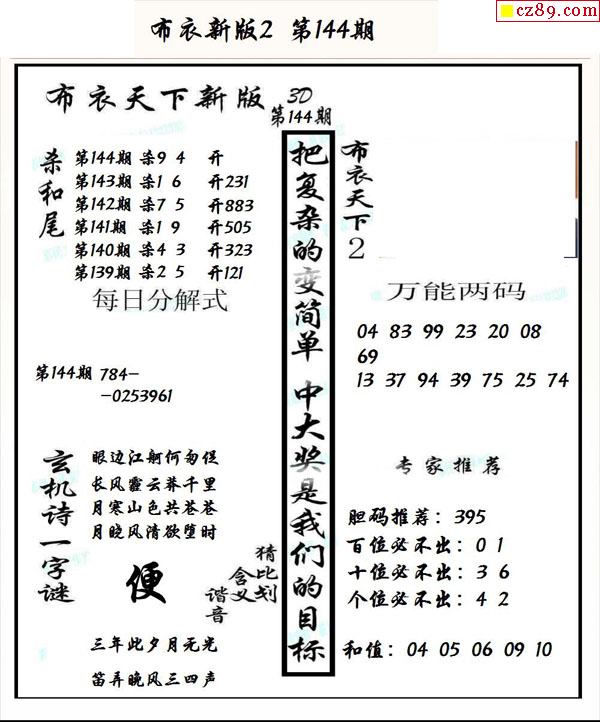 cz89.com
布衣新版2 第144期
布衣天下新版 3D
第144期
杀和尾
第144期 杀9 4 开
第143期 杀1 6 开231
第142期 杀7 5 开883
第141期 杀1 9 开505
第140期 杀4 3 开323
第139期 杀2 5 开121
每日分解式
第144期 784-
-0253961
玄机诗一字谜
眼边江舸何匆促
长风霾云莽千里
月寒山色共苍苍
月晓风清欲堕时
便
猜比划
含义
谐音
三年此夕月无光
笛弄晚风三四声
把复杂的变简单 中大奖是我们的目标
布衣天下2
万能两码
04 83 99 23 20 08
69
13 37 94 39 75 25 74
专家推荐
胆码推荐：395
百位必不出：0 1
十位必不出：3 6
个位必不出：4 2
和值：04 05 06 09 10